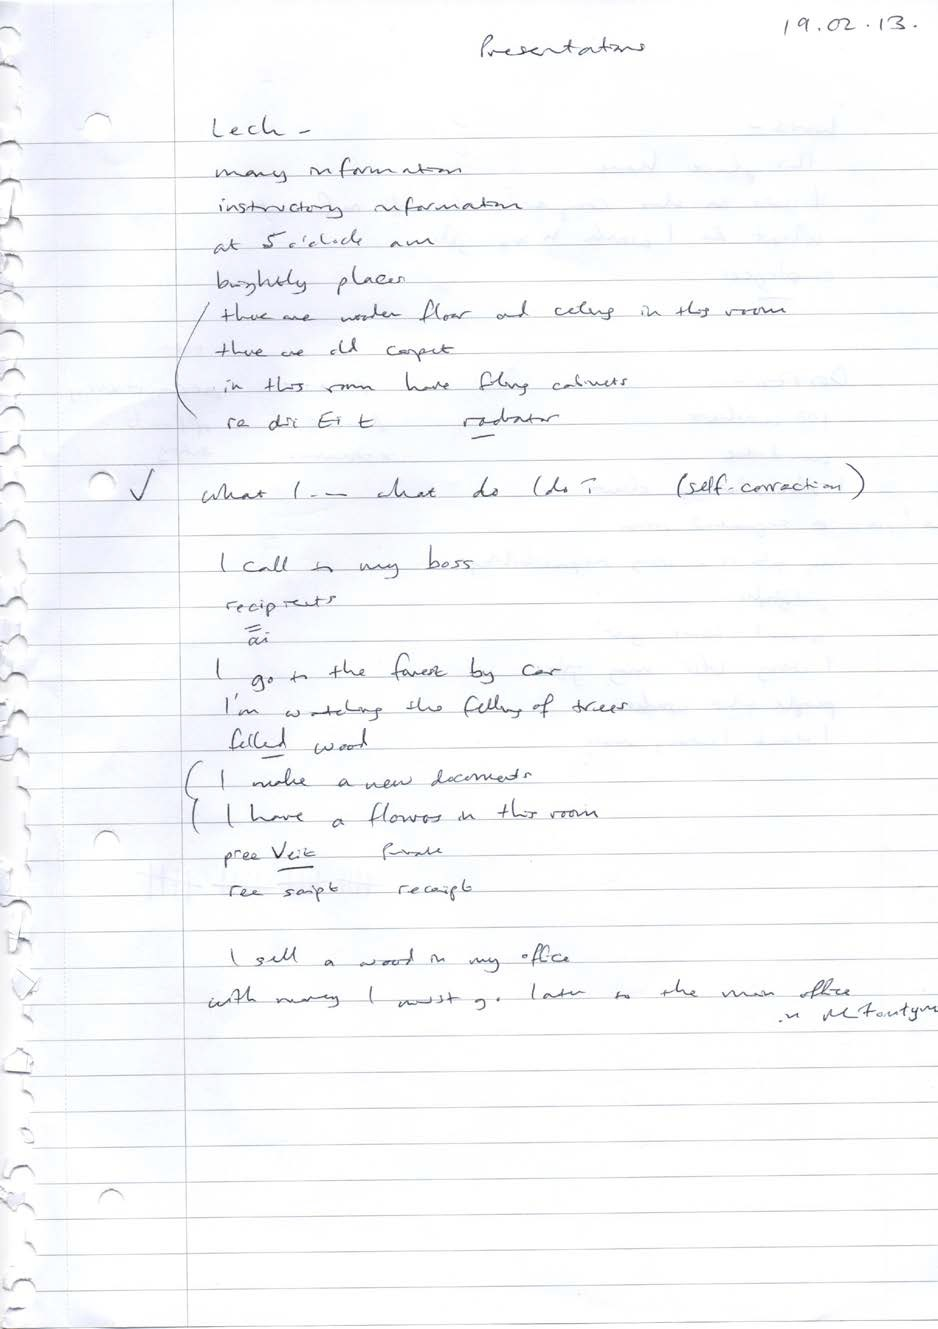 19.02.13.
Presentations
Lech -
many information
instructory information
at 5 o'clock am
brightly places
there are wooden floor and ceiling in this room
there are old carpet
in this room have filing cabinets
radiator
what I -- what do I do? (self-correction)
I call to my boss
recipients
ai
I go to the forest by car
I'm watching the felling of trees
felled wood
I make a new documents
I have a flowers in this room
pree Veit private
ree saipt receipt
I sell a wood in my office
with money I must go later to the main office
in